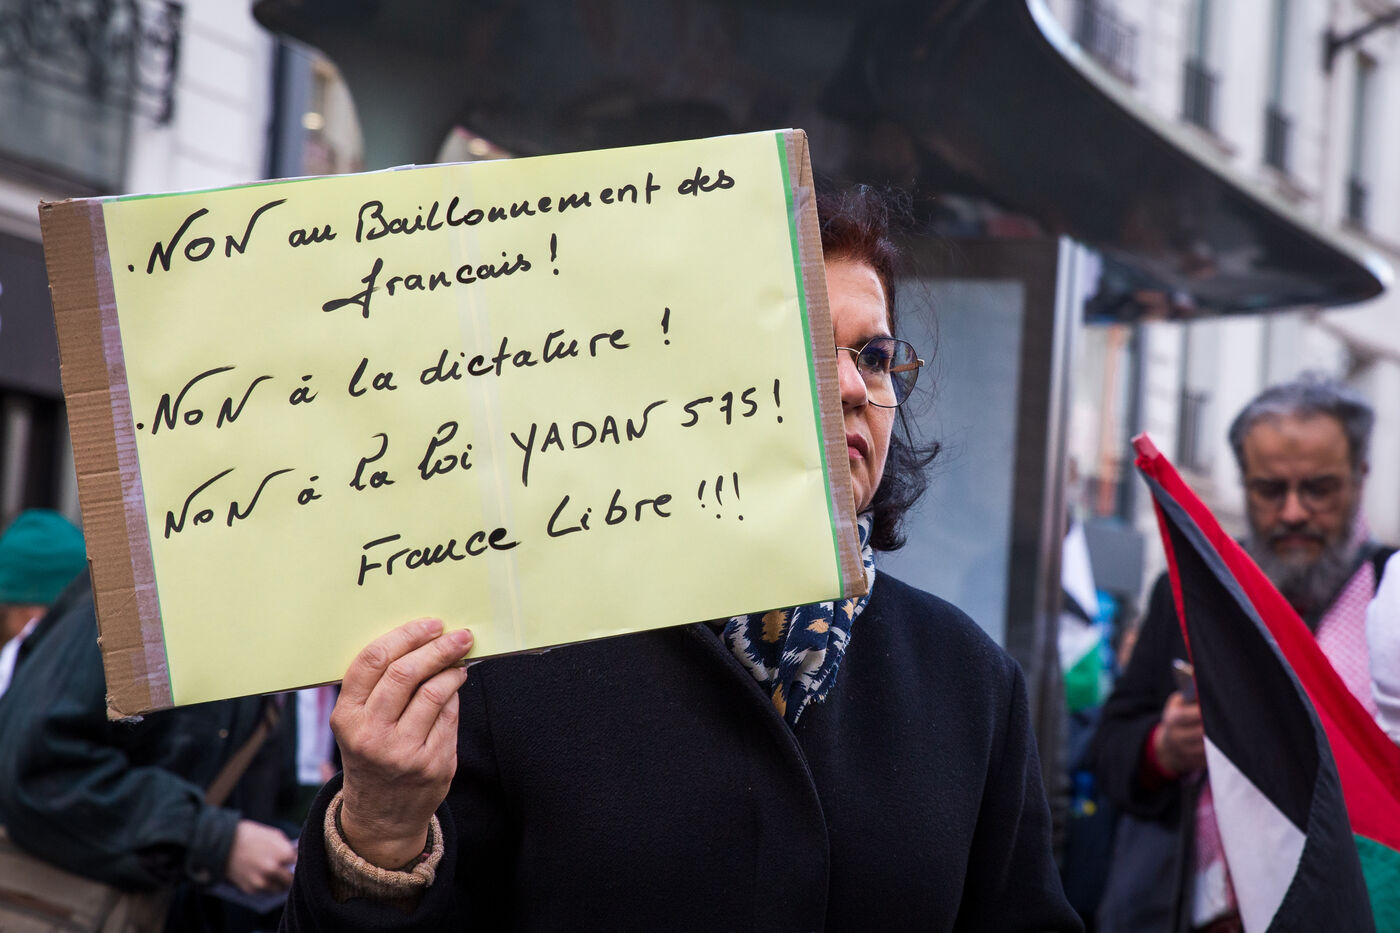 . NON au Baillonnement des
francais !
. NON à la dictature !
NON à la loi YADAN 575 !
France Libre !!!